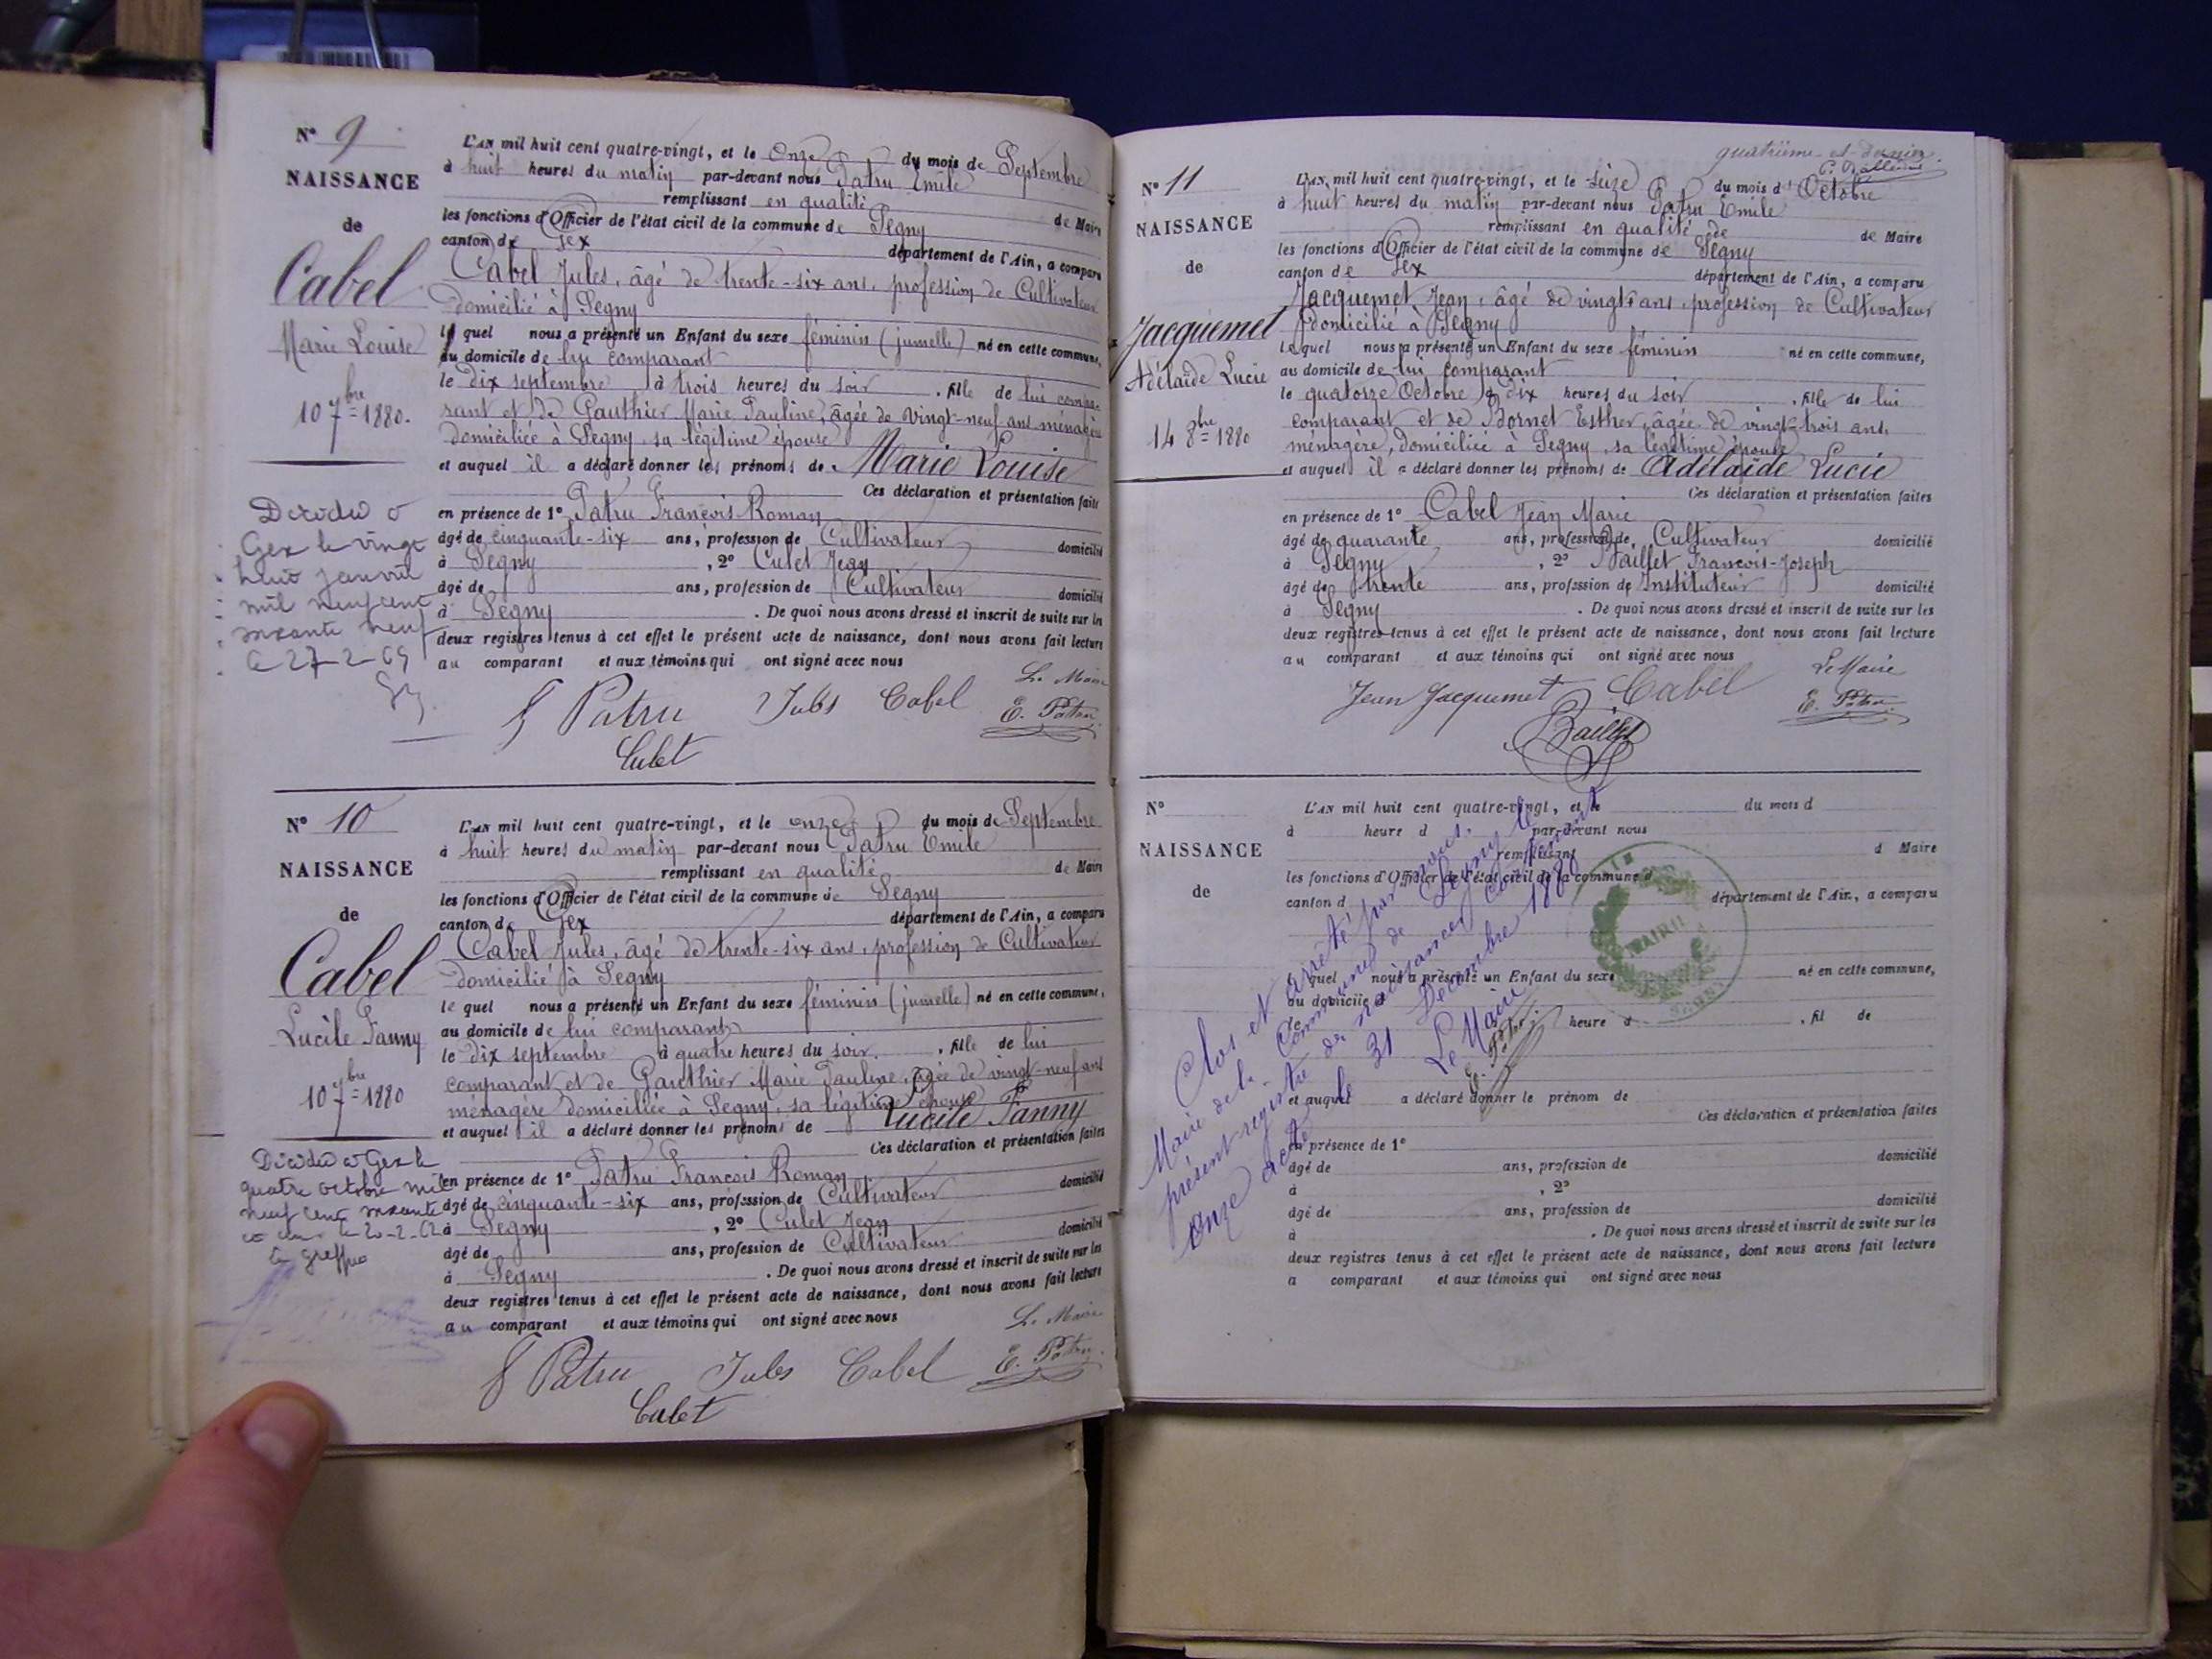 N° 9
NAISSANCE
de
Cabel
Marie Louise
10 7bre 1880.
L'AN mil huit cent quatre-vingt, et le onze du mois de Septembre
à huit heures du matin par-devant nous Patru Emile
remplissant en qualité de Maire
les fonctions d'Officier de l'état civil de la commune de Segny
canton de Gex département de l'Ain, a comparu
Cabel Jules, âgé de trente-six ans, profession de Cultivateur
domicilié à Segny
le quel nous a présenté un Enfant du sexe féminin (jumelle) né en cette commune,
au domicile de lui comparant
le dix septembre à trois heures du soir, fille de lui compa-
rant et de Gauthier Marie Pauline, âgée de vingt-neuf ans ménagère
domiciliée à Segny, sa légitime épouse
et auquel il a déclaré donner les prénoms de Marie Louise
Ces déclaration et présentation faites
en présence de 1° Patru François Roman
âgé de cinquante-six ans, profession de Cultivateur domicilié
à Segny, 2° Culet Jean
âgé de ans, profession de Cultivateur domicilié
à Segny. De quoi nous avons dressé et inscrit de suite sur les
deux registres tenus à cet effet le présent acte de naissance, dont nous avons fait lecture
au comparant et aux témoins qui ont signé avec nous
Le Maire
Patru Jules Cabel E. Patru
Culet
Décédée à
Gex le vingt
huit janvier
mil neuf cent
soixante neuf
le 27-2-69
N° 10
NAISSANCE
de
Cabel
Lucile Fanny
10 7bre 1880
L'AN mil huit cent quatre-vingt, et le onze du mois de Septembre
à huit heures du matin par-devant nous Patru Emile
remplissant en qualité de Maire
les fonctions d'Officier de l'état civil de la commune de Segny
canton de Gex département de l'Ain, a comparu
Cabel Jules, âgé de trente-six ans, profession de Cultivateur
domicilié à Segny
le quel nous a présenté un Enfant du sexe féminin (jumelle) né en cette commune,
au domicile de lui comparant
le dix septembre à quatre heures du soir, fille de lui
comparant et de Gauthier Marie Pauline, âgée de vingt-neuf ans
ménagère domiciliée à Segny, sa légitime épouse
et auquel il a déclaré donner les prénoms de Lucile Fanny
Ces déclaration et présentation faites
en présence de 1° Patru François Roman
âgé de cinquante-six ans, profession de Cultivateur domicilié
à Segny, 2° Culet Jean
âgé de ans, profession de Cultivateur domicilié
à Segny. De quoi nous avons dressé et inscrit de suite sur les
deux registres tenus à cet effet le présent acte de naissance, dont nous avons fait lecture
au comparant et aux témoins qui ont signé avec nous
Le Maire
Patru Jules Cabel E. Patru
Culet
Décédée à Gex le
quatre octobre mil
neuf cent soixante
le greffier
quatrième et dernier
N° 11
NAISSANCE
de
Jacquemet
Adélaïde Lucie
14 8bre 1880
L'AN mil huit cent quatre-vingt, et le seize du mois d'Octobre
à huit heures du matin par-devant nous Patru Emile
remplissant en qualité de de Maire
les fonctions d'Officier de l'état civil de la commune de Segny
canton de Gex département de l'Ain, a comparu
Jacquemet Jean, âgé de vingt ans, profession de Cultivateur
domicilié à Segny
lequel nous a présenté un Enfant du sexe féminin né en cette commune,
au domicile de lui comparant
le quatorze Octobre à dix heures du soir, fille de lui
comparant et de Bornet Esther, âgée de vingt-trois ans,
ménagère, domiciliée à Segny, sa légitime épouse
et auquel il a déclaré donner les prénoms de Adélaïde Lucie
Ces déclaration et présentation faites
en présence de 1° Cabel Jean Marie
âgé de quarante ans, profession de Cultivateur domicilié
à Segny, 2° Baillet François-Joseph
âgé de trente ans, profession de Instituteur domicilié
à Segny. De quoi nous avons dressé et inscrit de suite sur les
deux registres tenus à cet effet le présent acte de naissance, dont nous avons fait lecture
au comparant et aux témoins qui ont signé avec nous
Le Maire
Jean Jacquemet Cabel E. Patru
Baillet
N°
NAISSANCE
de
L'AN mil huit cent quatre-vingt, et le du mois d
à heure d par-devant nous
remplissant d Maire
les fonctions d'Officier de l'état civil de la commune d
canton d département de l'Ain, a comparu
quel nous a présenté un Enfant du sexe né en cette commune,
au domicile d
le heure d, fil de
et auquel a déclaré donner le prénom de
Ces déclaration et présentation faites
en présence de 1°
âgé de ans, profession de domicilié
à, 2°
âgé de ans, profession de domicilié
à. De quoi nous avons dressé et inscrit de suite sur les
deux registres tenus à cet effet le présent acte de naissance, dont nous avons fait lecture
a comparant et aux témoins qui ont signé avec nous
Clos et arrêté par nous,
Maire de la Commune de Segny le
présent registre de naissances contenant
onze actes 31 Décembre 1880
Le Maire
E. Patru
MAIRIE